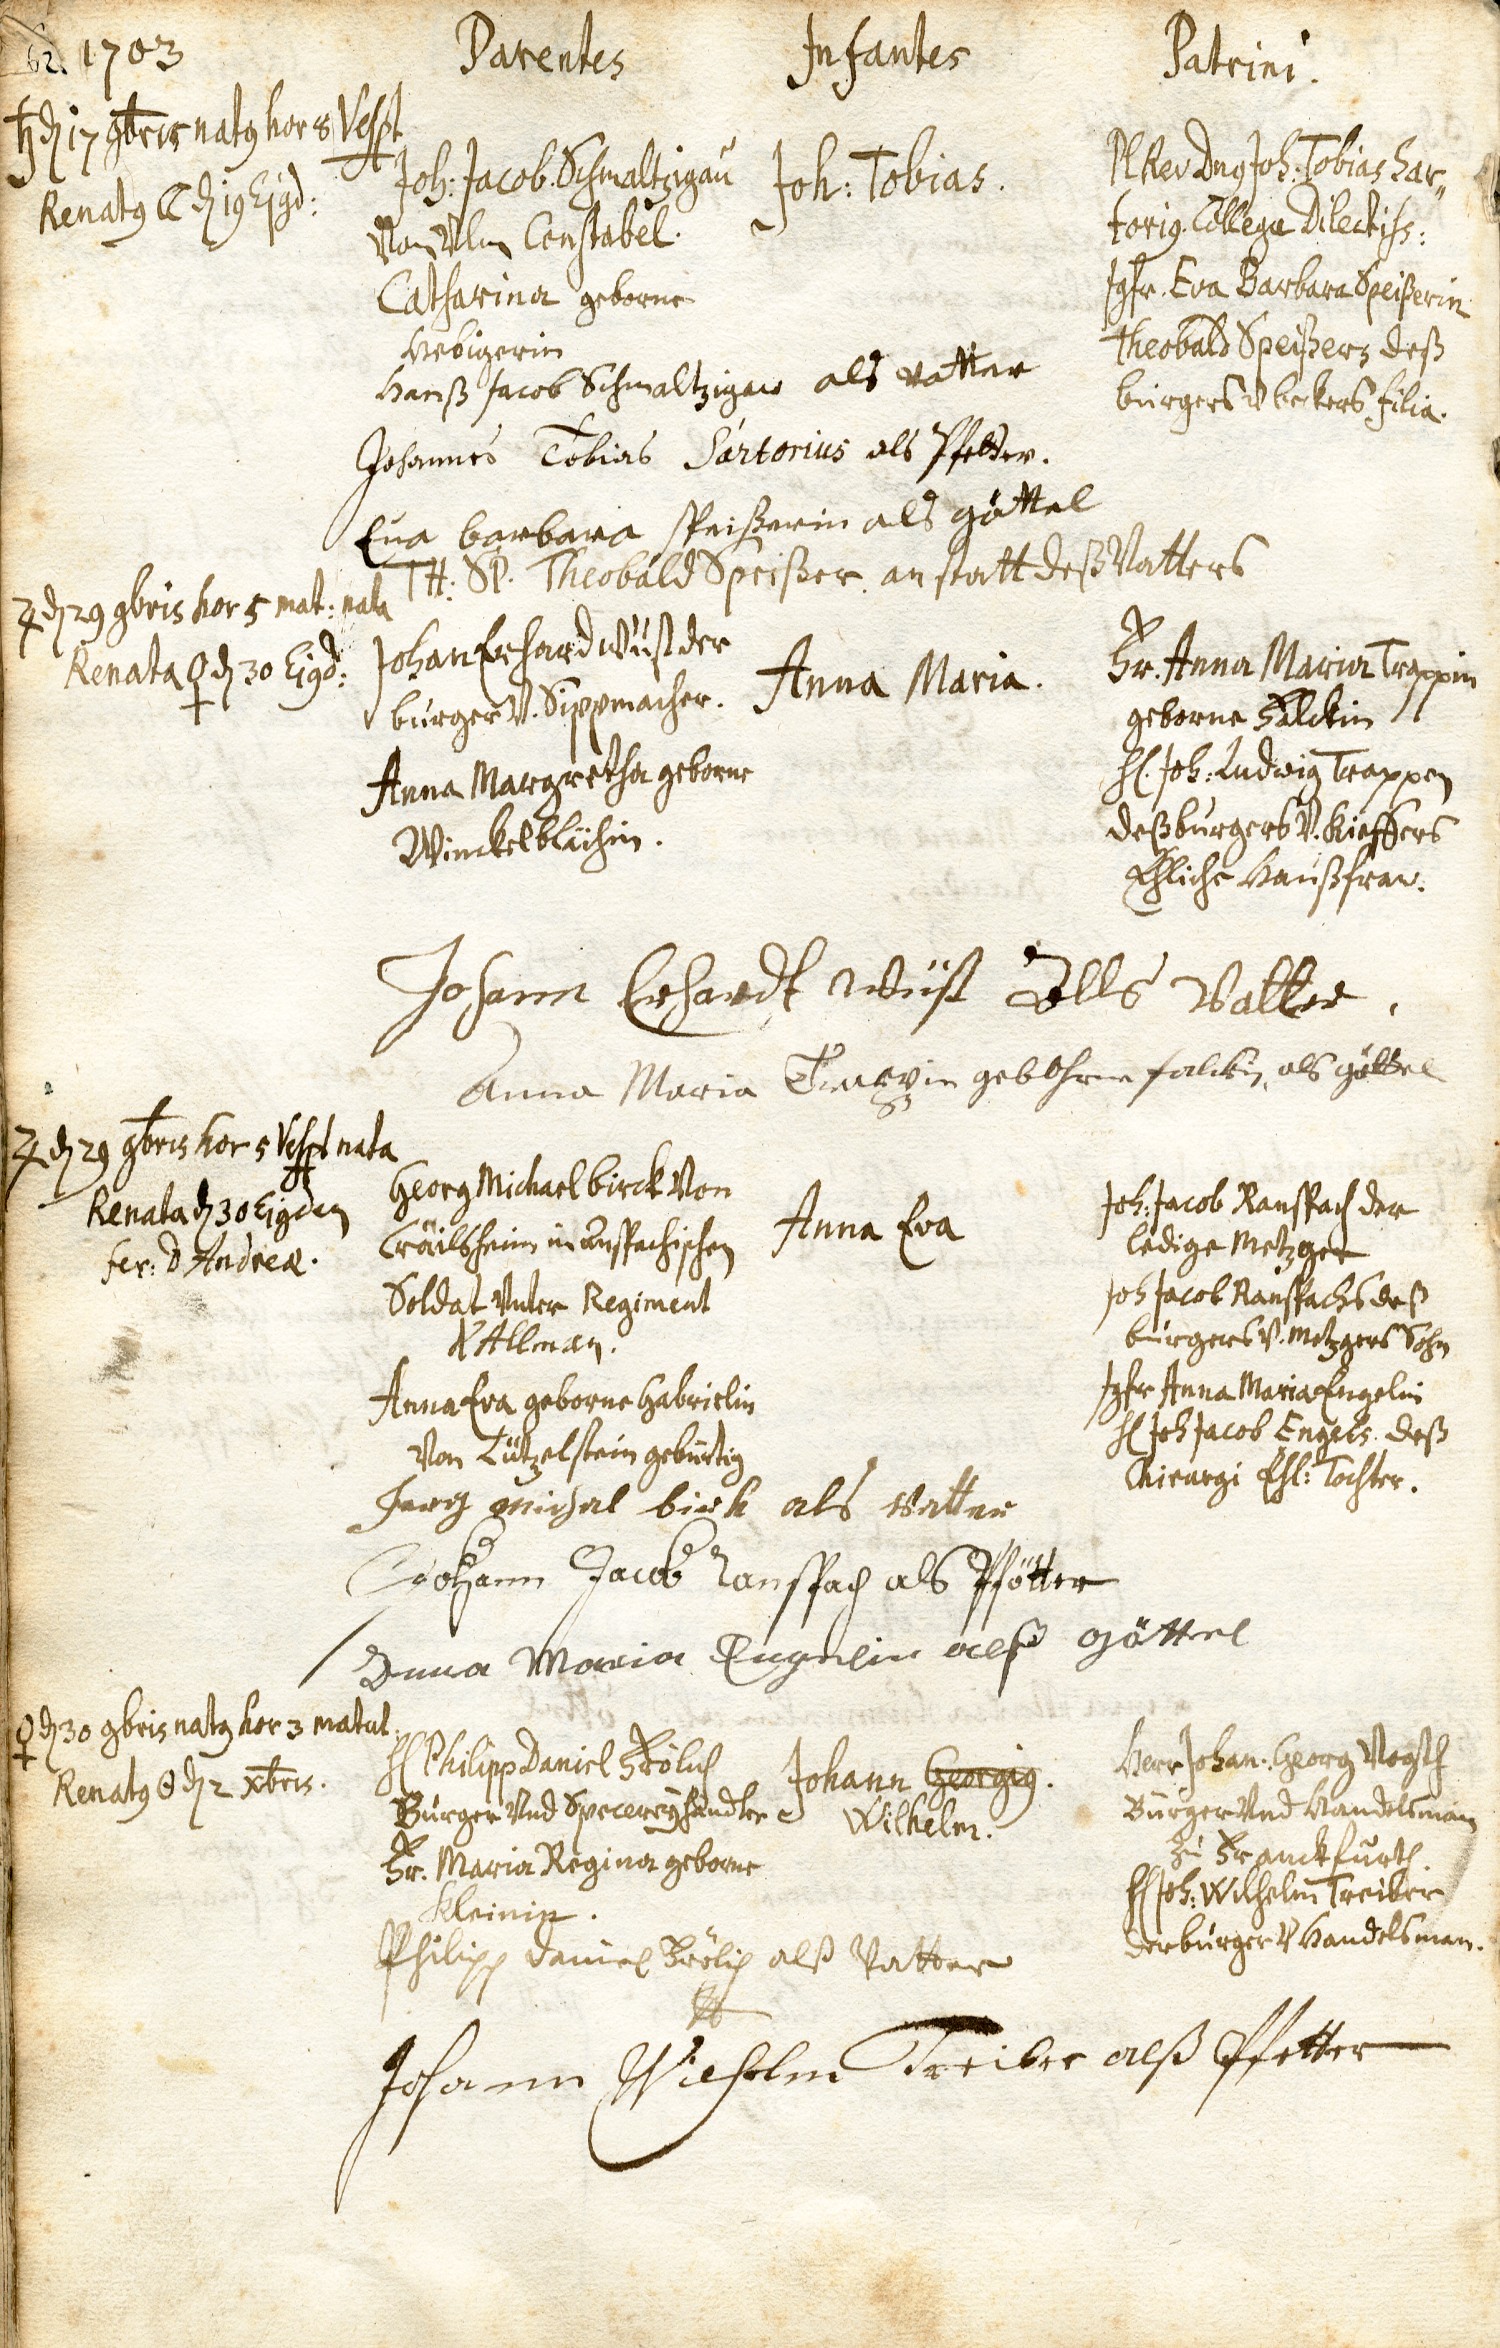 62. 1703 Parentes Infantes Patrini.
♄ d 17 9bris natq hor 8 Vespt
Renatq ☾ d 19 Ejgd:
Joh: Jacob. Schmaltzigaŭ
Von Ulm Constabel.
Catharina geborne
Hebigerin
Joh: Tobias.
Pl Rev Dnq Joh: Tobias Sar„
toriq. Collega Dilectiss:
Jgfr. Eva Barbara Speißerin
Theobald Speißers deß
burgers V beckers filia.
Hanß Jacob Schmaltzigaw als vatter
Johannes Tobias Sartorius als Pfetter.
Eva barbara speißerin als göttel
TH: SP. Theobald Speißer anstatt deß Vatters
♃ d 29 9bris hor 5 mat: nata
Renata ♀ d 30 Ejgd:
Johan Erhard Wüst der
burger V. Sippmacher.
Anna Margretha geborne
Winckelblëchin.
Anna Maria.
Fr. Anna Maria Trappin
geborne Falckin
H. Joh: Ludwig Trappen
deß burgers V. Kieffers
Ehliche Haußfraw.
Johann Erhardt Wüst Alls Vatter.
Anna Maria Trappin gebohrne falckin als göttel
♃ d 29 9bris hor 5 Vespt nata
Renata d 30 Ejgdem
fer: D Andreæ.
Georg Michael Birck Von
Cräilsheim in Anspachischen
Soldat Unter Regiment
d'Alleman.
Anna Eva geborne Gabrielin
Von Lützelstein gebürtig
Anna Eva
Joh: Jacob Ranspach der
ledige Metzger
Joh Jacob Ranspachs deß
bürgers V. Metzgers Sohn
Jgfr Anna Maria Engelin
H Joh Jacob Engels. deß
Chirurgi Ehl: Tochter.
Jerg michal birk als vatter
Johann Jacob Ranspach als Pfötter
Anna Maria Engelin alß göttel
♀ d 30 9bris natq hor 3 matut.
Renatq ☉ d 2 xbris.
H Philipp Daniel Frölich
Bürger Und Specereÿhändler
Fr. Maria Regina geborne
Kleinin.
Johann Georgiq.
Wilhelm.
Herr Johan: Georg Vogth
Bürger Und Handelsman
Zu Franckfurth.
H Joh: Wilhelm Treiber
der burger V Handelsman.
Philipp Daniel Frölich alß Vatter
Johann Wilhelm Treiber alß Pfetter